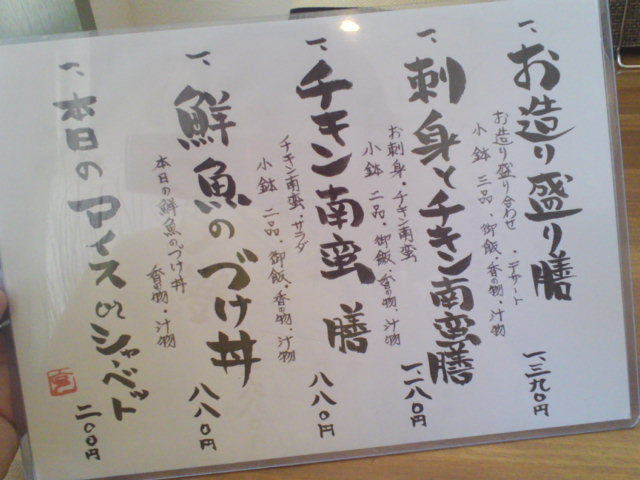 一、お造り盛り膳
お造り盛り合わせ・デザート
小鉢三品・御飯・香の物・汁物
一、三九〇円
一、刺身とチキン南蛮膳
お刺身・チキン南蛮
小鉢二品・御飯・香の物・汁物
一、二八〇円
一、チキン南蛮膳
チキン南蛮・サラダ
小鉢二品・御飯・香の物・汁物
八八〇円
一、鮮魚のづけ丼
本日の鮮魚のづけ丼
香の物・汁物
八八〇円
一、本日のアイスorシャーベット
二〇〇円